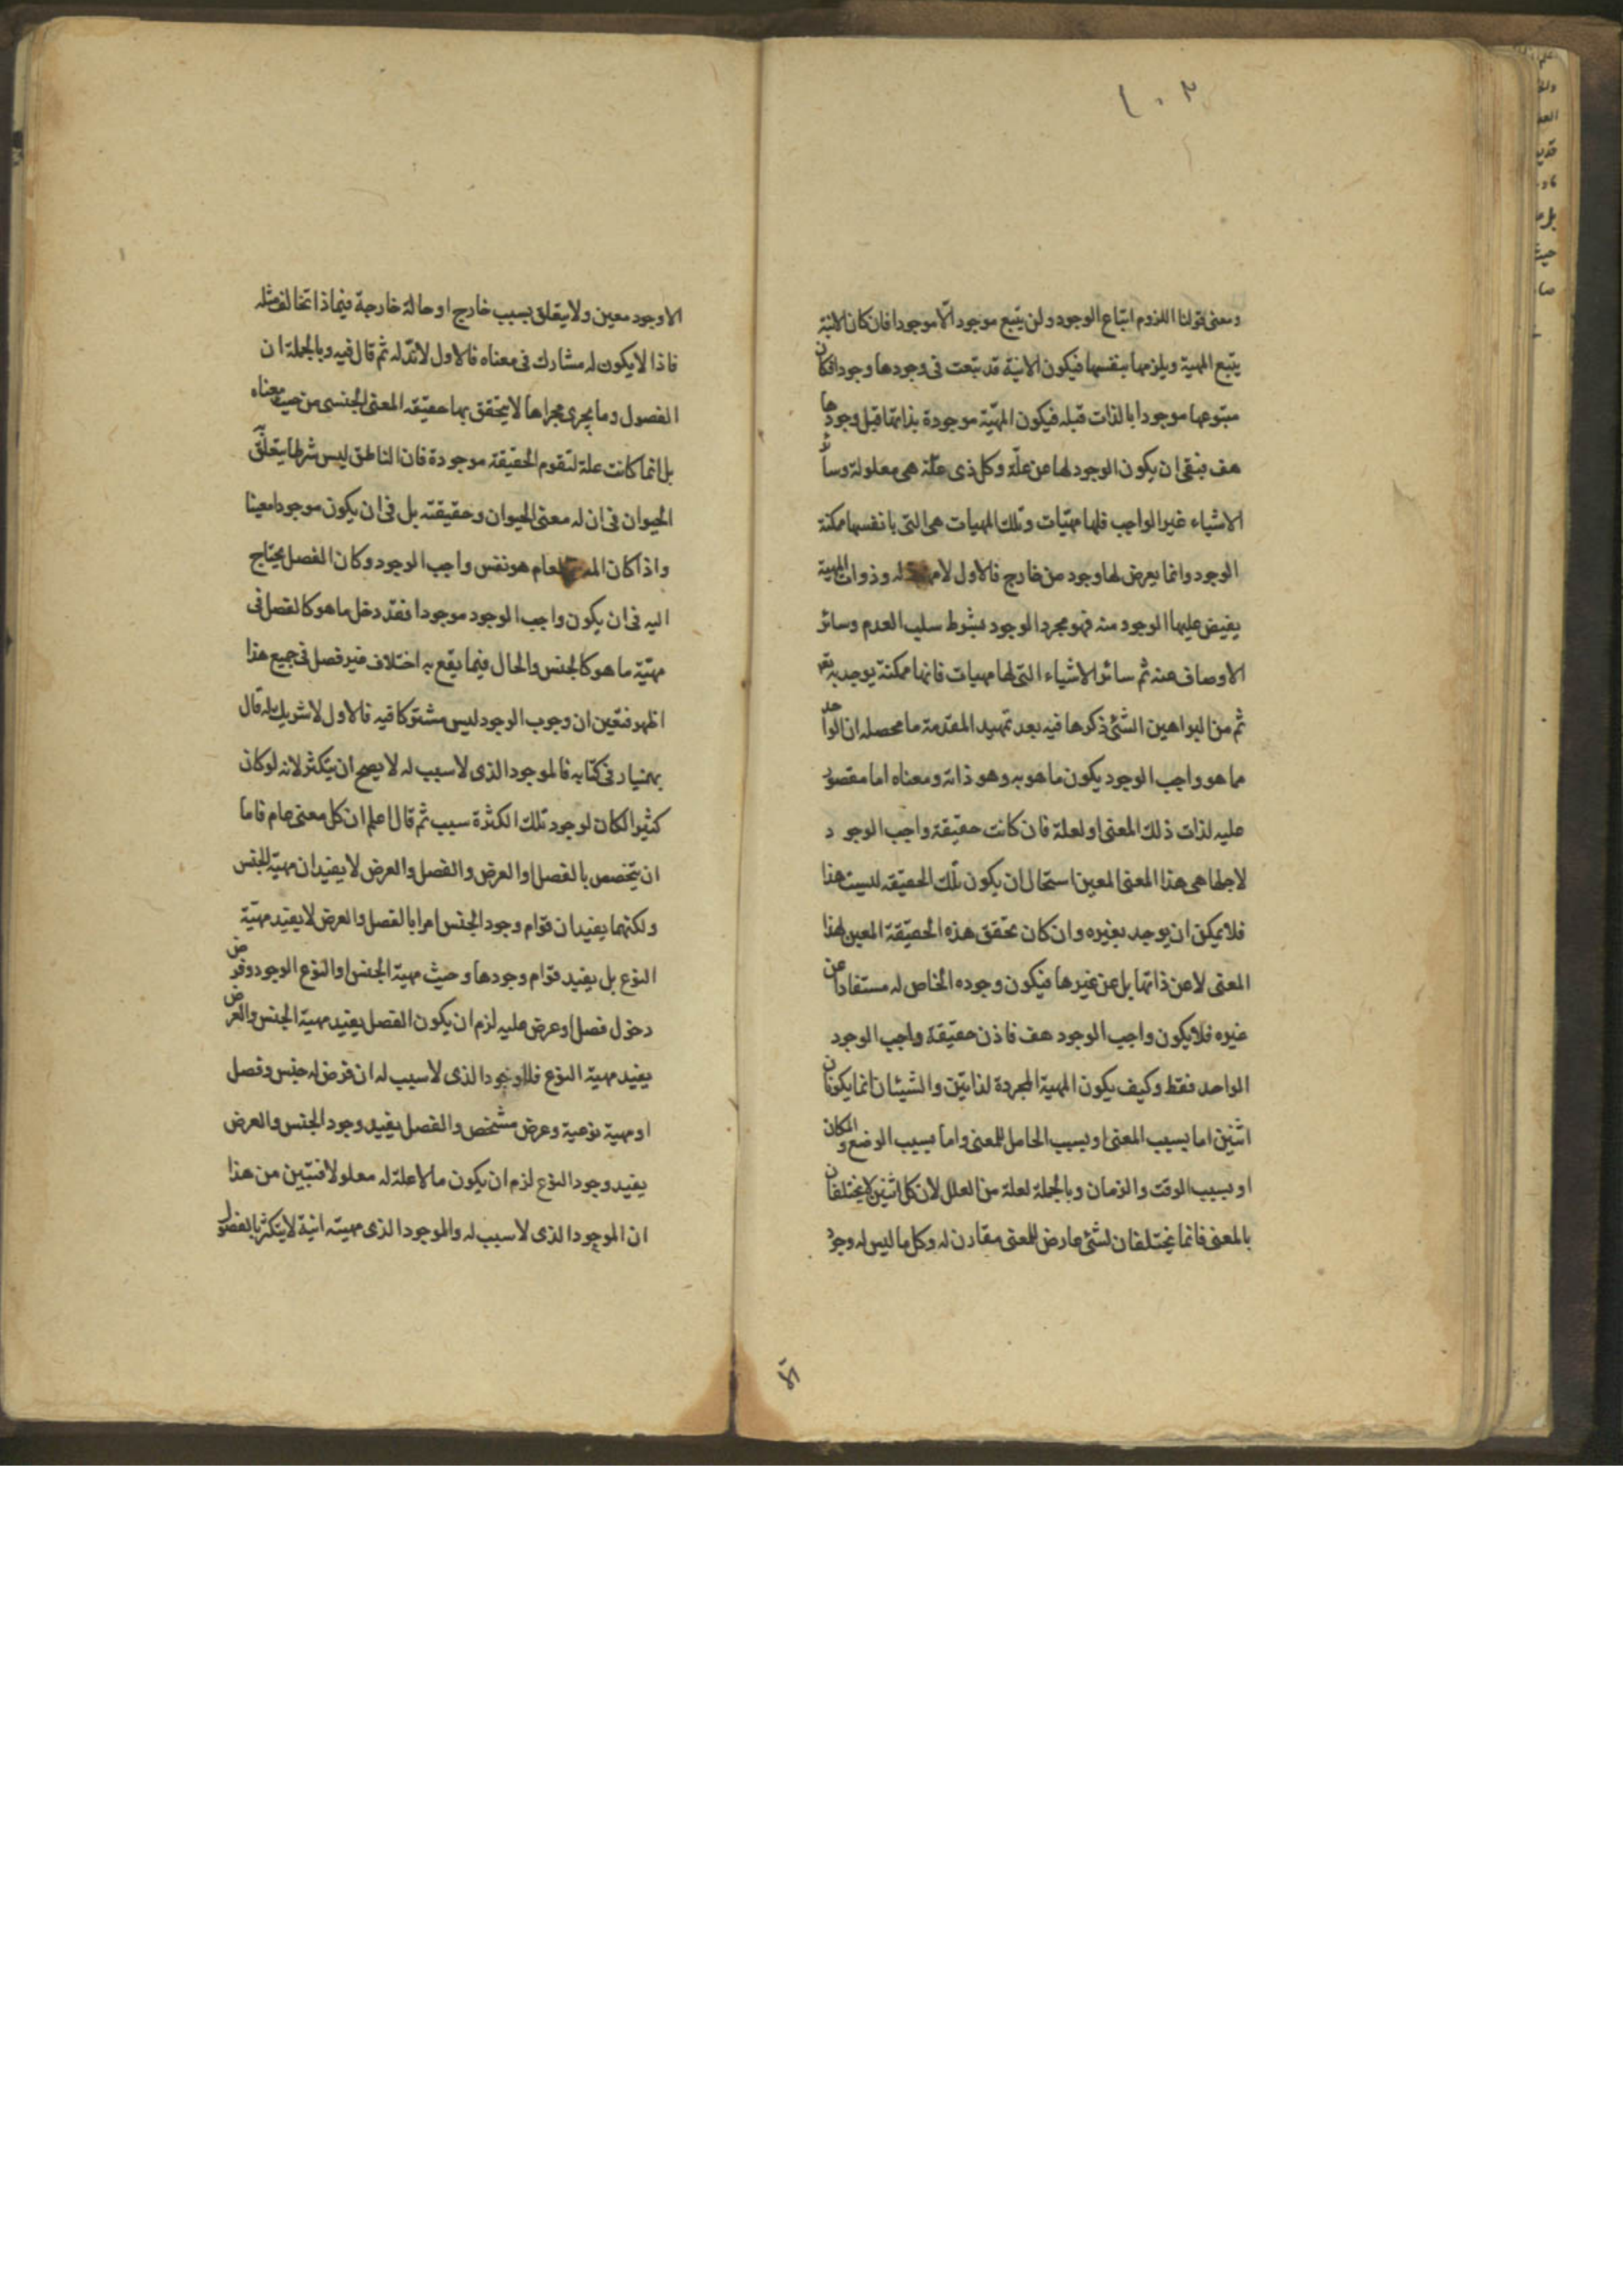 ١٠٢
ومعنى قولنا اللزوم اتباع الوجود ولن يتبع موجود الّا موجودا فان كان الانية
يتبع المهية ويلزمها بنفسها فيكون الانية قد تبعت فى وجودها وجودا فكان
متبوعها موجودا بالذات قبله فيكون المهيّة موجودة بذاتها قبل وجودها
هف فبقى ان يكون الوجود لها عن علّة وكل ذى علّة هى معلولة وسائر
الاشياء غير الواجب فلها مهيّات وتلك المهيات هى التى بانفسها ممكنة
الوجود وانما يعرض لها وجود من خارج فالاول لا مهية له وذوات المهية
يفيض عليها الوجود منه فهو مجرد الوجود بشرط سلب العدم وسائر
الاوصاف عنه ثم سائر الاشياء التى لها مهيات فانها ممكنة يوجد به
ثم من البراهين التى ذكرها فيه بعد تمهيد المقدمة ما محصله ان الواحد
مما هو واجب الوجود يكون ما هو به وهو ذاته ومعناه اما مقصور
عليه لذات ذلك المعنى او لعلة فان كانت حقيقة واجب الوجود
لاجلها هى هذا المعنى المعين استحال ان يكون تلك الحقيقه ليست هذا
فلا يمكن ان يوجد بغيره وان كان تحقق هذه الحقيقة المعين لهذا
المعنى لا عن ذاتها بل عن غيرها فيكون وجوده الخاص له مستفادا عن
غيره فلا يكون واجب الوجود هف فاذن حقيقة واجب الوجود
الواحد فقط وكيف يكون المهية المجردة لذاتين والشيئان انما يكونان
اثنين اما بسبب المعنى او بسبب الحامل للمعنى واما بسبب الوضع والمكان
او بسبب الوقت والزمان وبالجملة لعلة من العلل لان كل اثنين لا يختلفان
بالمعنى فانما يختلفان لشئ عارض للمعنى مقارن له وكل ما ليس له وجود
الّا
الا وجود معين ولا يتعلق بسبب خارج او حالة خارجة فبماذا تخالف مثله
فاذا لا يكون له مشارك فى معناه فالاول لا ندّ له ثم قال فيه وبالجملة ان
الفصول وما يجرى مجراها لا يتحقق بها حقيقه المعنى الجنسى من حيث معناه
بل انما كانت علة لتقوم الحقيقة موجودة فان الناطق ليس شرطا يتعلق به
الحيوان فى ان له معنى الحيوان وحقيقته بل فى ان يكون موجودا معينا
واذا كان العام هو نفس واجب الوجود وكان الفصل يحتاج
اليه فى ان يكون واجب الوجود موجودا فقد دخل ما هو كالفصل فى
مهيّة ما هو كالجنس والحال فيما يقع به اختلاف غير فصل فى جميع هذا
اظهر فتعين ان وجوب الوجود ليس مشتركا فيه فالاول لا شريك له قال
بهمنيار فى كتابه فالموجود الذى لا سبب له لا يصح ان يتكثر لانه لو كان
كثيرا لكان لوجود تلك الكثرة سبب ثم قال اعلم ان كل معنى عام فاما
ان يتخصص بالفصل او العرض والفصل والعرض لا يفيدان مهيّة الجنس
ولكنهما يفيدان قوام وجود الجنس امرا بالفصل والعرض لا يفيد مهيّة
النوع بل يفيد قوام وجودها وحيث مهية الجنس او النوع الوجود وفرض
دخول فصل او عرض عليه لزم ان يكون الفصل يفيد مهية الجنس والعرض
يفيد مهية النوع فالموجود الذى لا سبب له ان فرض له جنس وفصل
او مهية نوعية وعرض مشخص والفصل يفيد وجود الجنس والعرض
يفيد وجود النوع لزم ان يكون ما لا علة له معلولا فتبين من هذا
ان الموجود الذى لا سبب له والموجود الذى مهيته انية لا يتكثر بالفصول